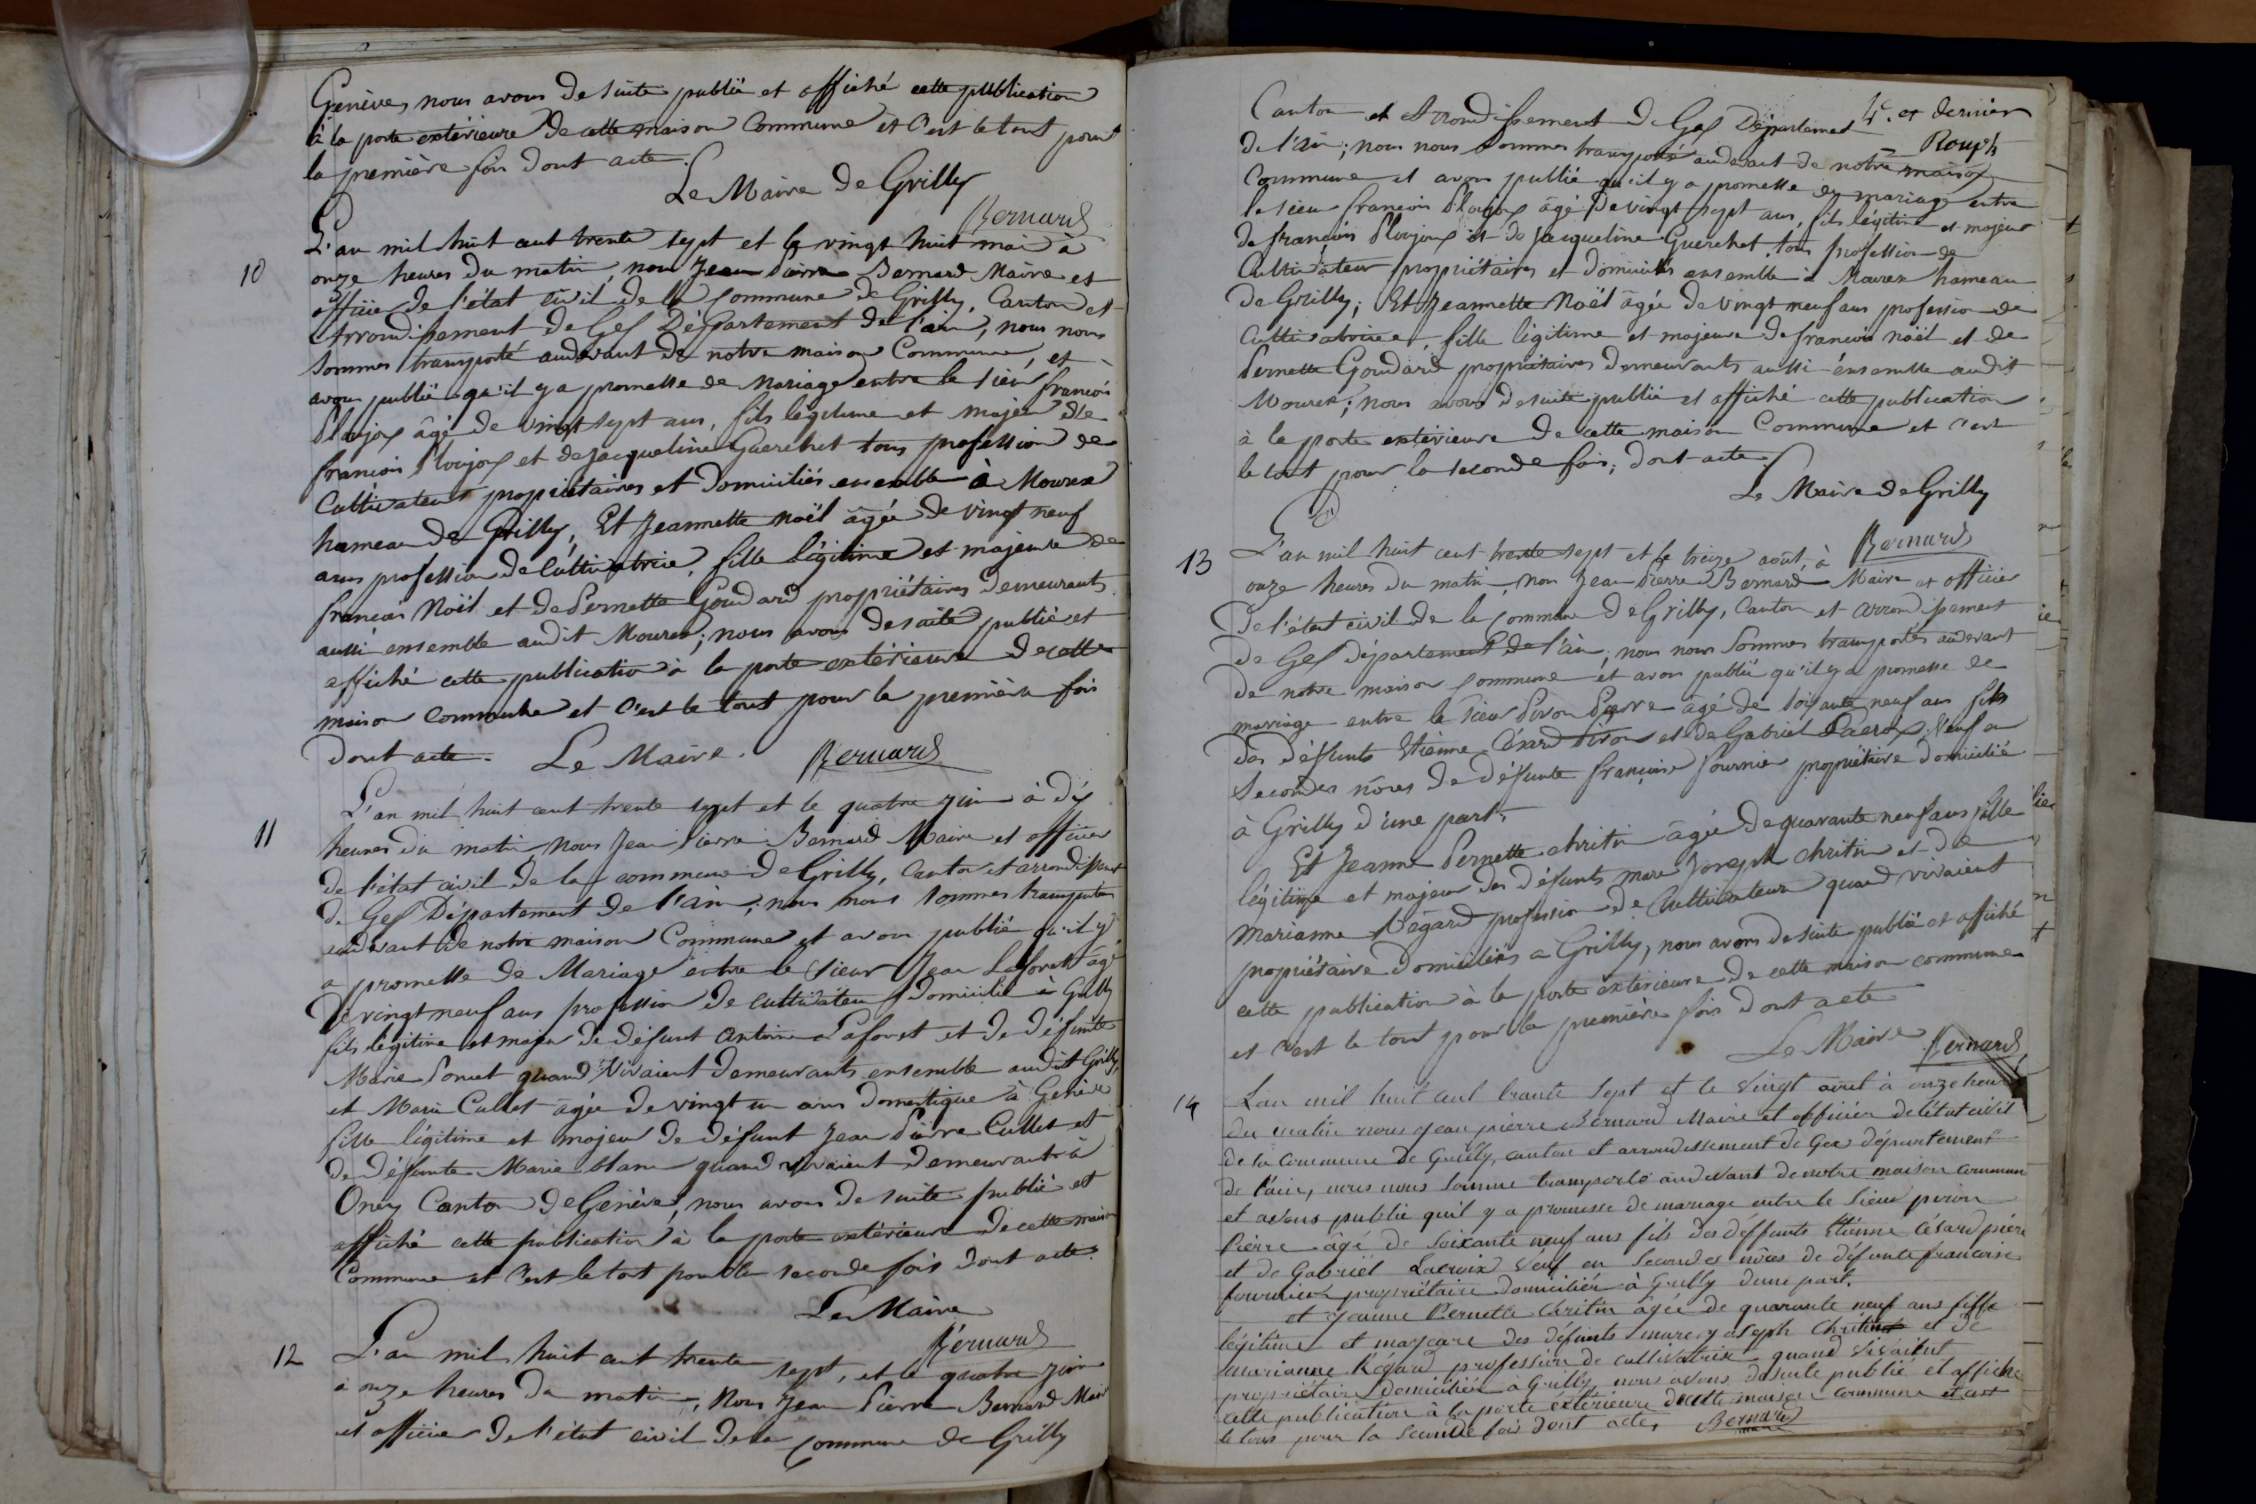 Genève, nous avons de suite publié et affiché cette publication
à la porte extérieure de cette maison Commune et c'est le tout pour
la première fois dont acte.
Le Maire de Grilly
Bernard
10
L'an mil huit cent trente sept et le vingt huit mai à
onze heures du matin, nous Jean Pierre Bernard Maire et
officier de l'état civil de la Commune de Grilly, Canton et
Arrondissement de Gex Département de l'ain, nous nous
sommes transporté audevant de notre maison Commune, et
avons publié qu'il y a promesse de Mariage entre le sieur françois
âgé de vingt sept ans, fils légitime et majeur de
françois et de Jacqueline Guerchet tous profession de
Cultivateurs propriétaires et domiciliés ensemble à Mourex
hameau de Grilly, Et Jeannette Noël âgée de vingt neuf
ans profession de Cultivatrice, fille légitime et majeure de
françois Noël et de Pernette Goudard propriétaires demeurants
aussi ensemble audit Mourex; nous avons de suite publié et
affiché cette publication à la porte extérieure de cette
maison commune et c'est le tout pour la première fois
dont acte. Le Maire. Bernard
11
L'an mil huit cent trente sept et le quatre juin à dix
heures du matin nous Jean Pierre Bernard Maire et officier
de l'état civil de la commune de Grilly, Canton et arrondissement
de Gex Département de l'ain; nous nous sommes transportés
audevant de notre maison Commune et avons publié qu'il y
a promesse de Mariage entre le sieur Jean Laforet âgé
de vingt neuf ans profession de cultivateur domicilié à Grilly
fils légitime et majeur de défunt Antoine Laforet et de défunte
Marie Poncet quand vivaient demeurants ensemble audit Grilly,
et Marie Cullet âgée de vingt un ans domestique à Genève
fille légitime et majeur de défunt Jean Pierre Cullet et
de défunte Marie blanc quand vivaient demeurants à
Onex Canton de Genève, nous avons de suite publié et
affiché cette publication à la porte extérieure de cette maison
Commune et c'est le tout pour la seconde fois dont acte.
Le Maire
Bernard
12
L'an mil huit cent trente sept, et le quatre juin
à onze heures du matin, Nous Jean Pierre Bernard Maire
et officier de l'état civil de la commune de Grilly
4e. et dernier
Canton et Arrondissement de Gex Département
de l'ain; nous nous sommes transporté audevant de notre maison
Commune et avons publié qu'il y a promesse de mariage entre
le sieur françois âgé de vingt sept ans, fils légitime et majeur
de françois et de Jacqueline Guerchet, tous profession de
Cultivateur propriétaires et domiciliés ensemble à Mourex hameau
de Grilly; Et Jeannette Noël âgée de vingt neuf ans profession de
Cultivatrice, fille légitime et majeure de francois noël et de
Pernette Goudard propriétaires demeurants aussi ensemble audit
Mourex; nous avons de suite publié et affiché cette publication
à la porte extérieure de cette maison Commune et c'est
le tout pour la seconde fois, dont acte.
Le Maire de Grilly
Bernard
13
L'an mil huit cent trente sept et le treize août, à
onze heures du matin, nous Jean Pierre Bernard Maire et officier
De l'état civil de la commune de Grilly, Canton et arrondissement
de Gex département de l'ain; nous nous sommes transportés audevant
de notre maison commune et avons publié qu'il y a promesse de
mariage entre le sieur Piron Pierre âgé de soixante neuf ans fils
des défunts Etienne César Piron et de Gabriel Lacroix, Veuf en
secondes nôces de défunte françoise fournier propriétaire domicilié
à Grilly d'une part,
Et Jeanne Pernette chritin âgée de quarante neuf ans fille
légitime et majeur des défunts marc Joseph chritin et de
marianne Régard profession de Cultivateur quand vivaient
propriétaire domiciliés a Grilly, nous avons de suite publié et affiché
cette publication à la porte extérieure de cette maison commune
et c'est le tout pour la première fois dont acte
Le Maire Bernard
14
L'an mil huit cent trante sept et le vingt à onze heures
du matin nous jean pierre Bernard Maire et officier de l'état civil
de la commune de Grilly, canton et arrondissement de Gex département
de l'ain, nous nous somme transporté audevant de notre maison commune
et avons publié quil y a promesse de mariage entre le sieur
Pierre âgé de soixante neuf ans fils des deffunts Etienne César
et de Gabriel Lacroix veuf en secondes nôces de défunte francoise
fournier propriétaire domicilié à Grilly dune part.
et jeanne Pernette chritin âgée de quarante neuf ans fille
légitime et majeure des défunts marc joseph chritin et de
marianne Régard profession de cultivatrice quand vivaient
propriétaire domiciliée à Grilly nous avons desuite publié et affiché
cette publication à la porte extérieure de cette maison commune et cest
le tous pour la seconde fois dont acte, Bernard
maire